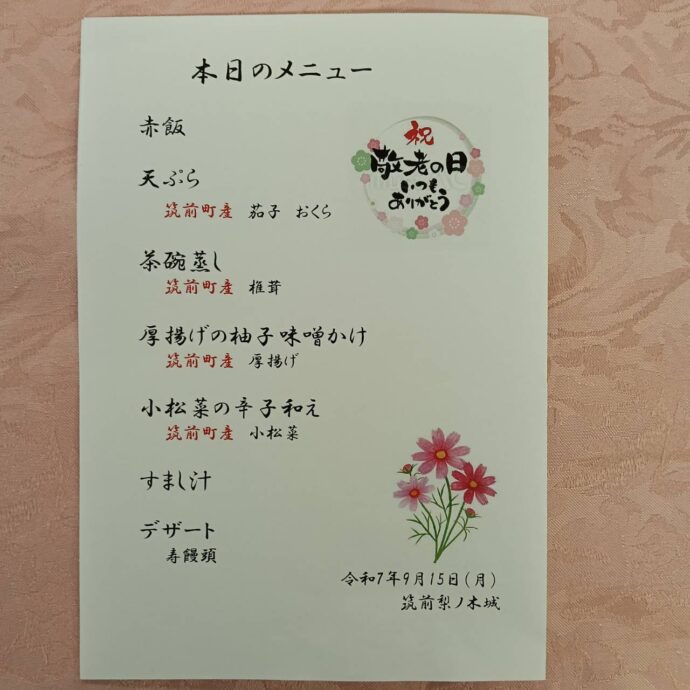 本日のメニュー
赤飯
祝
敬老の日
いつも
ありがとう
天ぷら
筑前町産 茄子 おくら
茶碗蒸し
筑前町産 椎茸
厚揚げの柚子味噌かけ
筑前町産 厚揚げ
小松菜の辛子和え
筑前町産 小松菜
すまし汁
デザート
寿饅頭
令和7年9月15日(月)
筑前梨ノ木城